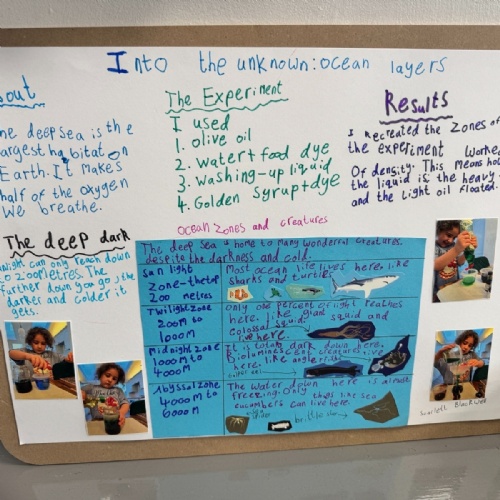 Into the unknown: ocean layers
out
he deep sea is the
argest habitat on
Earth. It makes
half of the oxygen
we breathe.
The deep dark
nlight can only reach down
o 200 metres. The
further down you go the
darker and colder it
gets.
The Experiment
I used
1. olive oil
2. water + food dye
3. washing-up liquid
4. Golden Syrup + dye
Results
I recreated the zones of
the experiment worked
Of density. This means how
the liquid is the heavy
and the light oil floated.
Ocean zones and creatures
The deep sea is home to many wonderful creatures.
despite the darkness and cold.
Sun light
zone - the top
200 metres
Most ocean life lives here. like
sharks and turtles
Twilight zone
200M to
1000M
only one percent of light reaches
here. like giant squid and
Colossal squid
live here.
Midnight zone
1000M to
4000M
It is totally dark down here.
Bioluminescent creatures live
here. like anglerfish
Abyssal zone
4000M to
6000M
The water down here is almost
freezing. Only things like sea
cucumbers can live here.
brittle star
Scarlett Blackwell